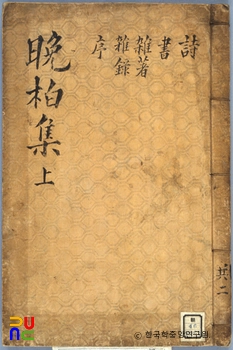 晩柏集 上
詩
書
雜著
雜錄
序
共二
© 한국학중앙연구원